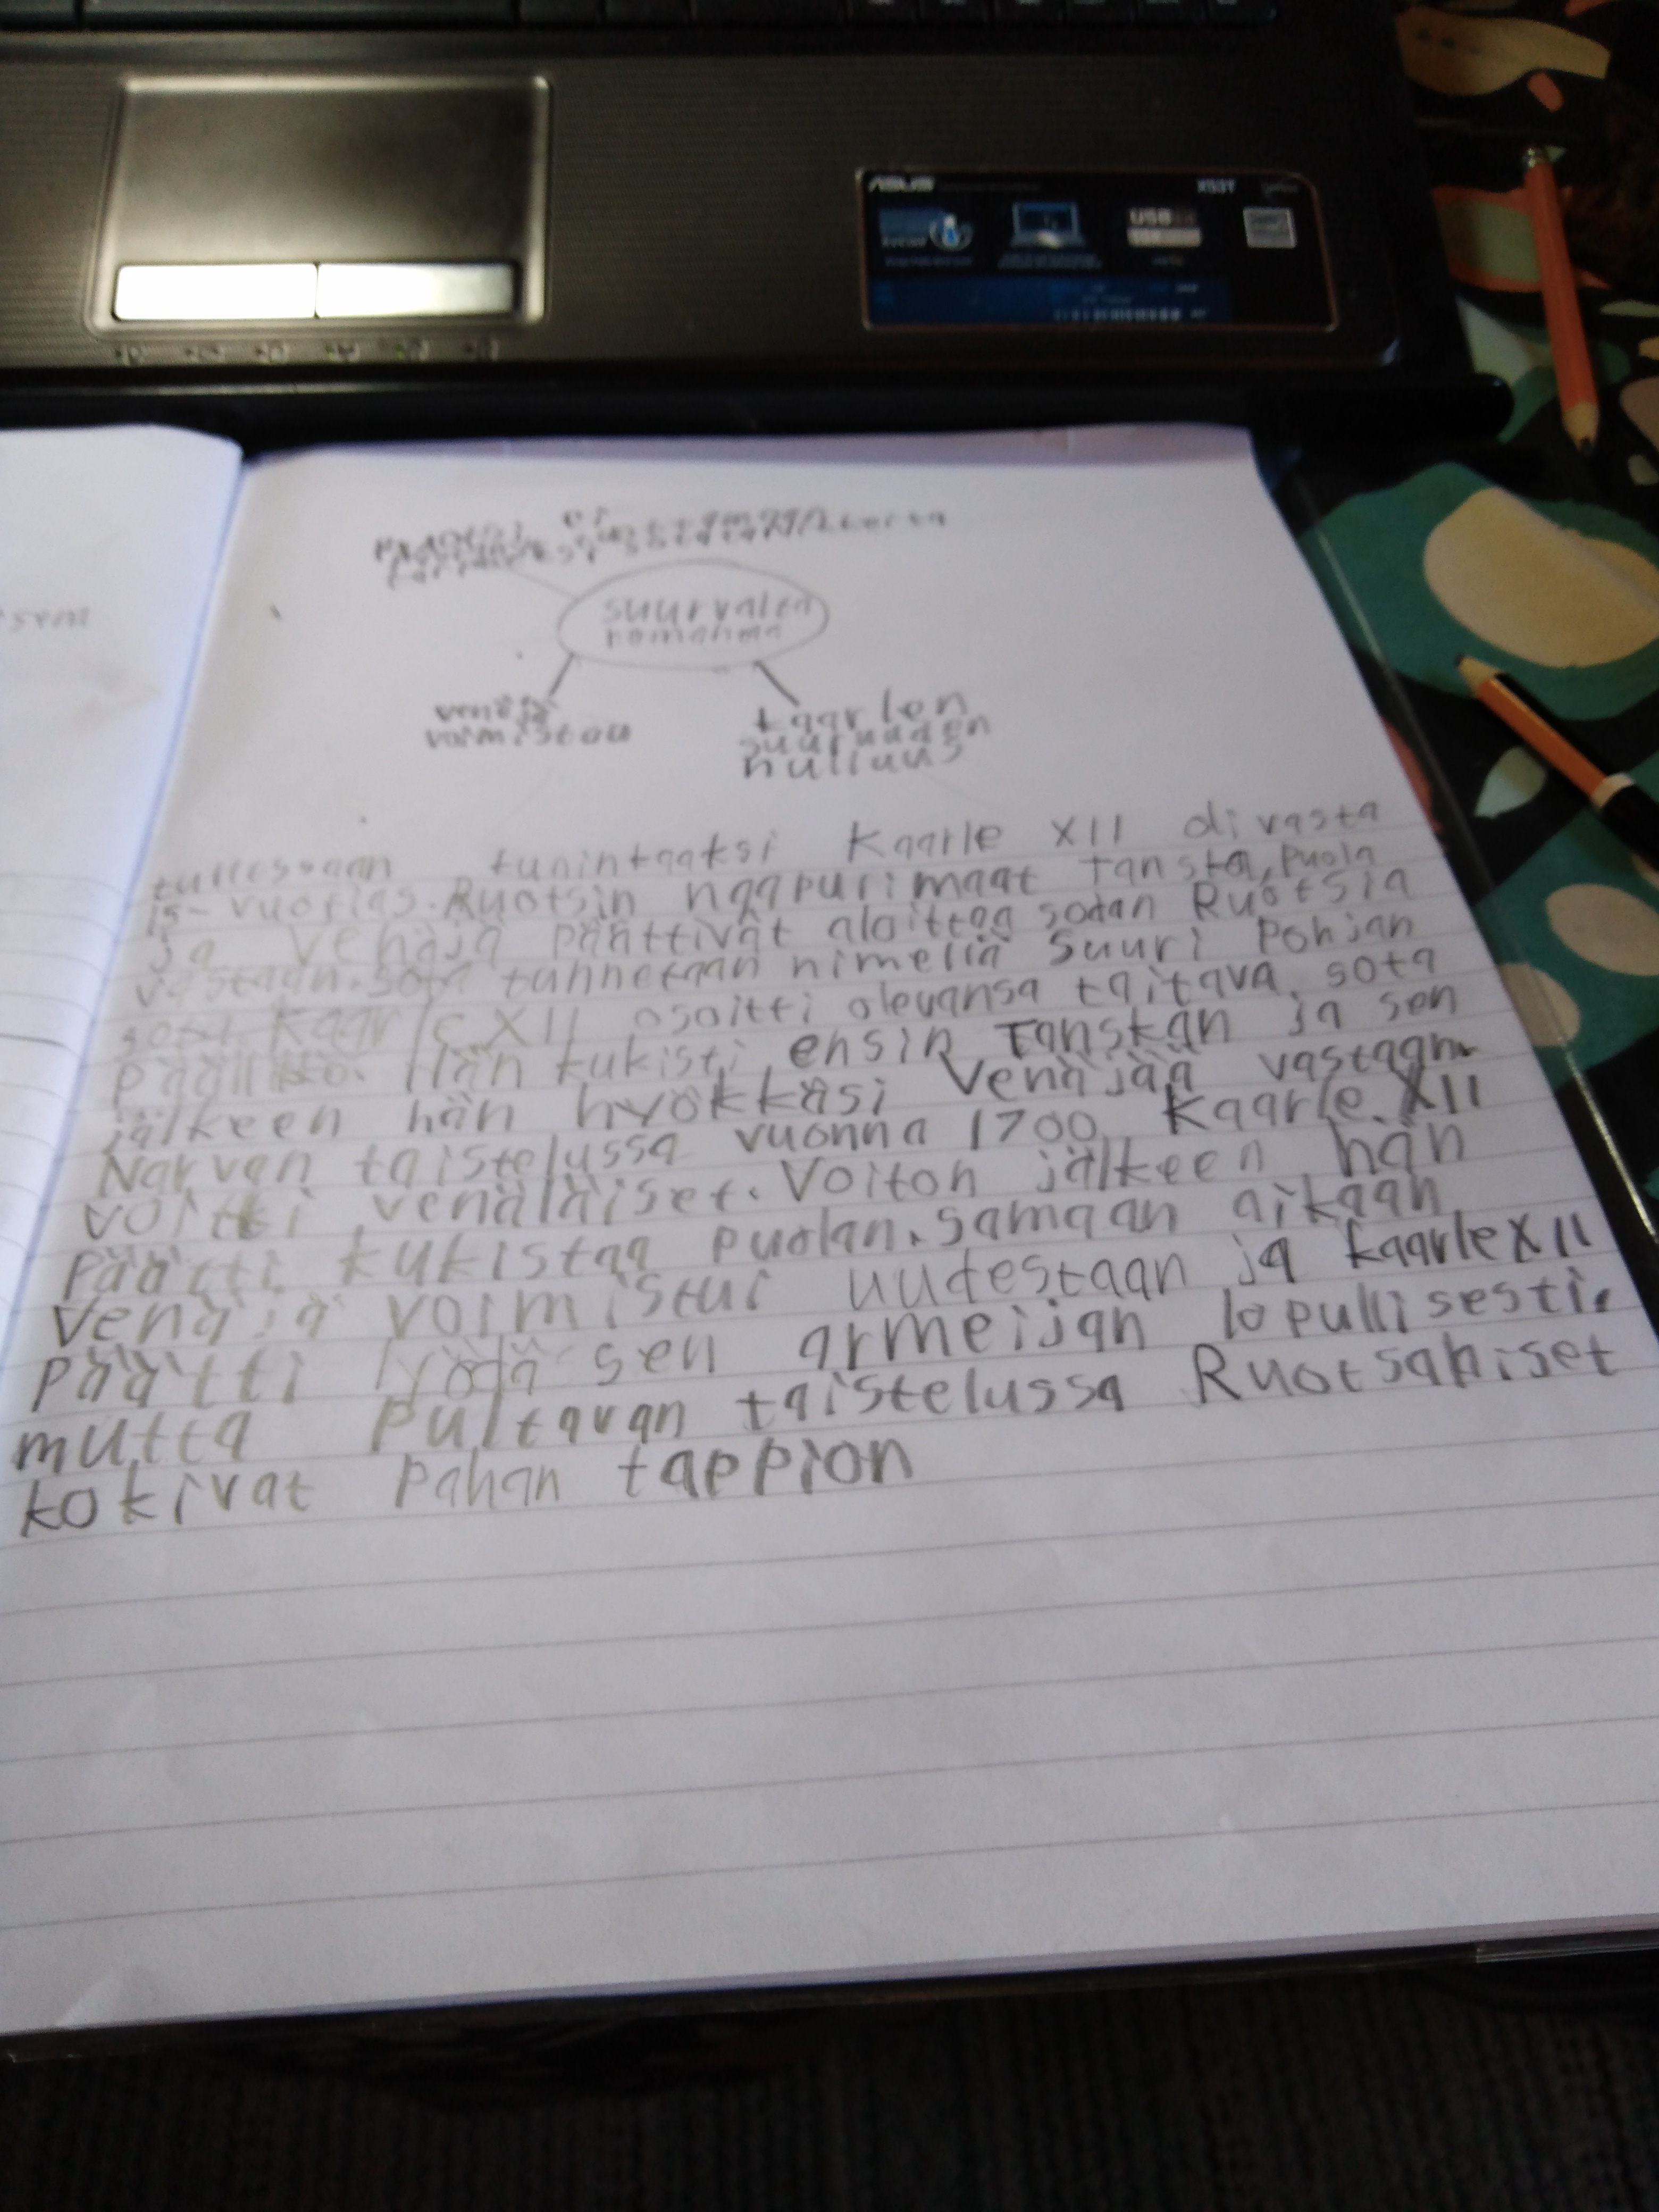 ASUS
X53T
USB
sem
ei
suurvalta
romahma
venäjä
voimistuu
kaarlen
suuruuden
hulluus
tullessaan tunintaaksi Kaarle XII oli vasta
15-vuotias. Ruotsin naapurimaat Tanska, Puola
ja Venäjä päättivät aloittaa sodan Ruotsia
vastaan. sota tunnetaan nimellä Suuri Pohjan
sota. Kaarle XII osoitti olevansa taitava sota
päällikö. Hän kukisti ensin Tanskan ja sen
jälkeen hän hyökkäsi Venäjää vastaan
Narvan taistelussa vuonna 1700 Kaarle XII
voitti venäläiset. Voiton jälkeen hän
päätti kukistaa puolan. samaan aikaan
Venäjä voimistui uudestaan ja kaarle XII
päätti lyödä sen armeijan lopullisesti.
mutta Pultavan taistelussa Ruotsabiset
kokivat pahan tappion